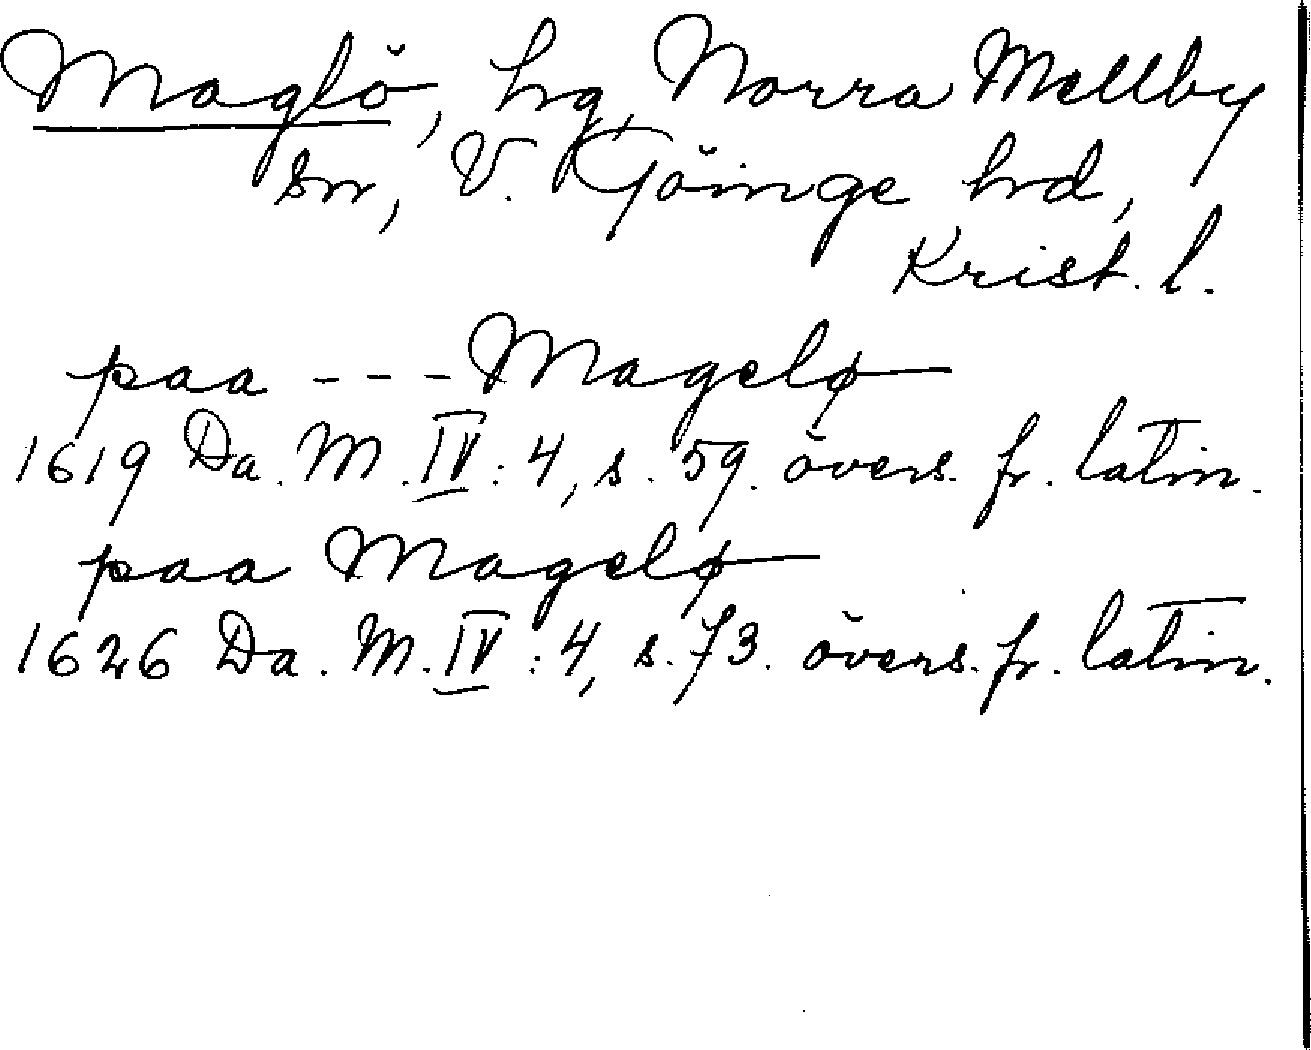 Maglö, hg, Norra Mellby
sn, V. Göinge hd,
Krist. l.
paa - - - Magelø
1619 Da. M. IV: 4, s. 59. övers. fr. latin.
paa Magelø
1626 Da. M. IV: 4, s. 73. övers. fr. latin.